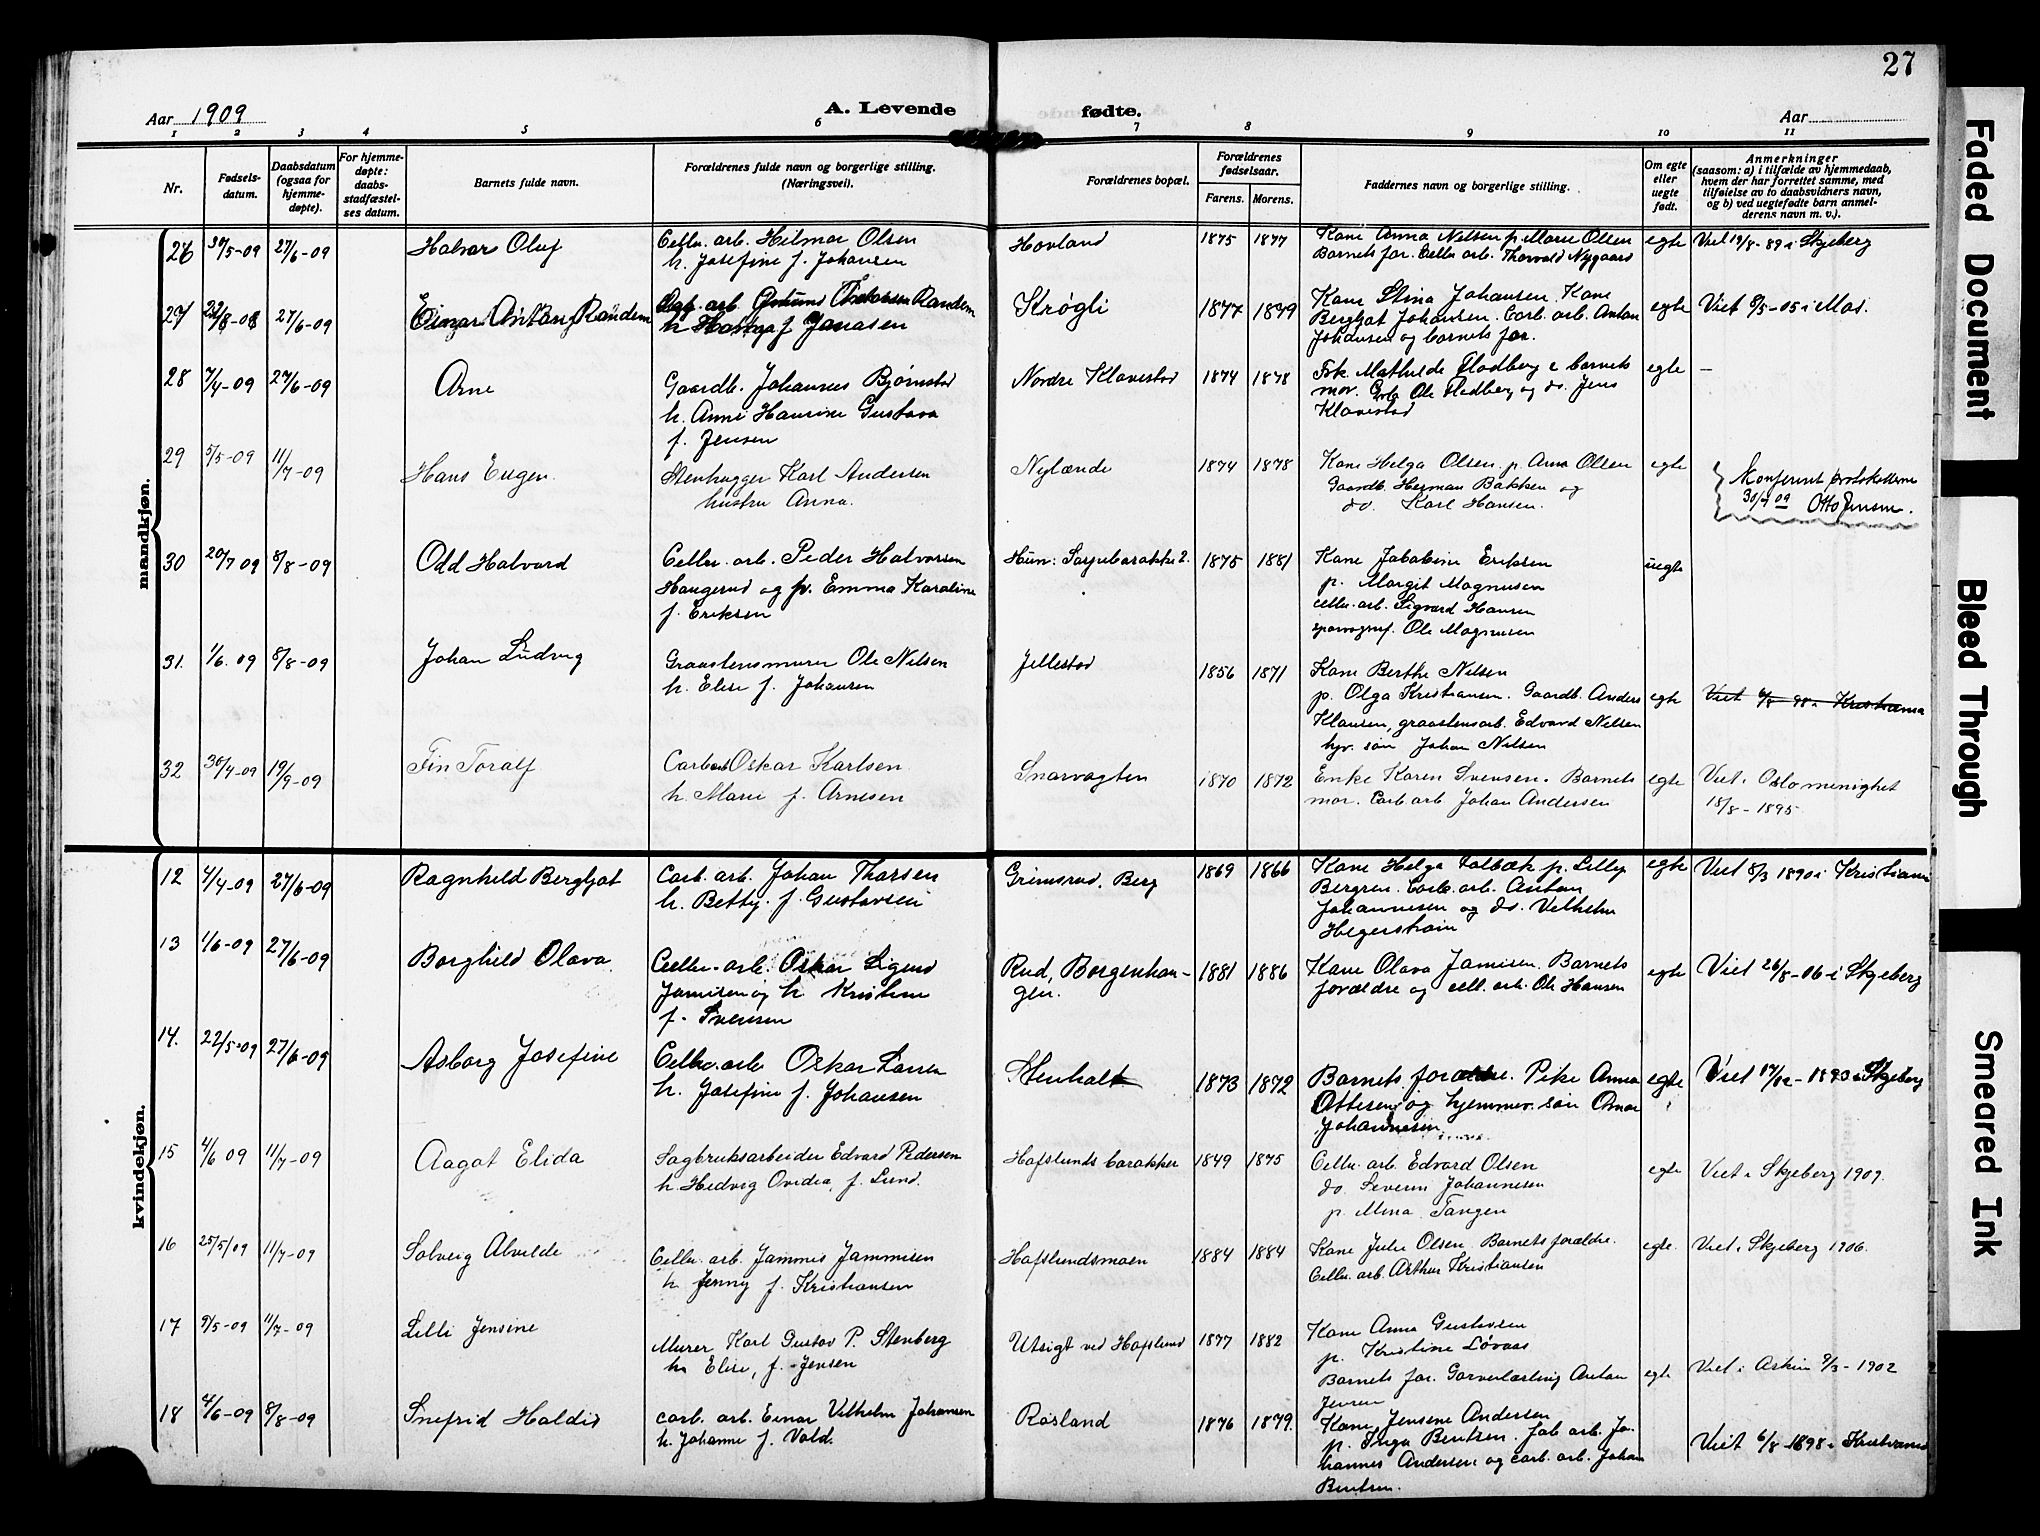 27
Aar 1909
A. Levende fødte.
Aar
1 2 3 4 5 6 7 8 9 10 11
Nr.
Fødsels-
datum.
Daabsdatum
(ogsaa for
hjemme-
døpte).
For hjemme-
døpte:
daabs-
stadfæstel-
ses datum.
Barnets fulde navn.
Forældrenes fulde navn og borgerlige stilling.
(Næringsvei).
Forældrenes bopæl.
Forældrenes
fødselsaar.
Farens. Morens.
Faddernes navn og borgerlige stilling.
Om egte
eller
uegte
født.
Anmerkninger
(saasom: a) i tilfælde av hjemmedaab,
hvem der har forrettet samme, med
tilføielse av to daabsvidners navn,
og b) ved uegtefødte barn anmel-
derens navn m. v.).
mandkjøn.
26 30/5-09 27/6-09 Halvor Oluf
Cellu. arb. Hilmar Olsen
h. Josefine f. Johansen
Hovland 1875 1877
Kone Anna Nilsen p. Marie Olsen
Barnets far. Cellu arb. Thorvald Nygaard
egte Viet 19/8-89 i Skjeberg
27 22/8-08 27/6-09 Einar Anton Randem
arb. Randem
h. f. Jonasen
Krøgli 1877 1879
Kone Stina Johansen. Kone
Bergljot Johansen. Carb. arb. Anton
Johansen og barnets far.
egte Viet 8/5-05 i Mos.
28 7/4-09 27/6-09 Arne
Gaardb. Johannes Bjørnstad
h. Anne Hansine Gustava
f. Jensen
Nordre Klavestad 1874 1878
Frk. Mathilde Flodberg & barnets
mor. Grb. Ole Flodberg og do. Jens
Klavestad
egte —
29 5/5-09 11/7-09 Hans Eugen.
Stenhugger Karl Andersen
hustru Anna.
Nylænde 1874 1878
Kone Helga Olsen. p. Anna Olsen
Gaardb. Herman Bakken og
do. Karl Hansen.
egte
Konferert protokollerne
30/7 09 Otto Jensen.
30 20/7 09 8/8-09 Odd Halvard
Cellu. arb. Peder Halvorsen
Haugerud og p. Emma Karoline
f. Eriksen
Hun: Sarpebarakke 2. 1875 1881
Kone Jakobine Eriksen
p. Margit Magnusen
cellu. arb. Sigvard Hansen
sporvognsf. Ole Magnusen
uegte
31. 1/6. 09 8/8-09 Johan Ludvig
Graastensmurer Ole Nilsen
h. Elise f. Johansen
Jellestad 1856 1871
Kone Berthe Nilsen
p. Olga Kristiansen. Gaardb. Anders
Klausen, graastensarb. Edvard Nilsen
hjv. søn Johan Nilsen
egte Viet 6/8 98 i Kristiania
32 30/4-09 19/9-09 Fin Toralf
Carbarb Oskar Karlsen
h. Marie f. Arnesen
Snarvagten 1870 1872
Enke Karen Svensen. Barnets
mor. Carb arb Johan Andersen
egte Viet i Oslo menighet
18/8-1895
kvindekjøn.
12 4/4-09 27/6-09 Ragnhild Bergljot
Carb. arb. Johan Thorsen
h. Betty. f. Gustavsen
Grimsrud, Berg 1869 1866
Kone Helga Kolbæk p. Lilly
Bergren. Carb. arb. Anton
Johannesen og do. Vilhelm
Hegerstrøm
egte Viet 8/3 1890 i Kristiania
13 1/6-09 27/6-09 Borghild Olava
Cellu. arb. Oskar Sigurd
Jamisen og h Kristine
f. Svensen
Rud, Borgenhau-
gen. 1881 1886
Kone Olava Jamisen. Barnets
forældre og cell. arb. Ole Hansen
egte Viet 26/8-06 i Skjeberg
14. 22/5-09 27/6-09 Asborg Josefine
Cellu. arb Oskar Larsen
h. Josefine f. Johansen
Stenholt 1873 1872
Barnets forældre. Pike Anna
Ottesen og hjemmev. søn Omar
Johannesen
egte Viet 17/12-1893 i Skjeberg
15 4/6 09 11/7-09 Aagot Elida
Sagbruksarbeider Edvard Pedersen
h. Hedvig Ovidia, f. Lund.
Hafslunds barakker 1849 1875
Cellu. arb. Edvard Olsen
do. Severin Johannesen
p. Mina Tangen
egte Viet i Skjeberg 1907.
16 25/5/09 11/7-09 Solveig Alvilde
Cellu. arb. Jammis Jammisen
h. Jenny f. Kristiansen
Hafslundsmoen 1884 1884
Kone Julie Olsen. Barnets forældre.
Cellu. arb. Arthur Kristiansen
egte. Viet i Skjeberg 1906.
17 9/5-09 11/7-09 Lilli Jensine
Murer Karl Gustav P. Stenberg
h. Elise, f. Jensen
Utsigt ved Hafslund 1877 1882
Kone Anna Gustavsen
p. Kristine Løvaas
Barnets far. Garverlærling Anton
Jensen
egte Viet i Askim 9/3-1902
18 4/6-09 8/8-09 Snefrid Haldis
carb. arb. Einar Vilhelm Johansen
h. Johanne f. Vold.
Røsland 1876 1879.
Kone Jensine Andersen
p. Inga Bentsen. Fab arb. Jo-
hannes Andersen og carb. arb. Johan
Bentsen.
Viet 6/8-1898 i Kristiania
Faded Document
Bleed Through
Smeared Ink